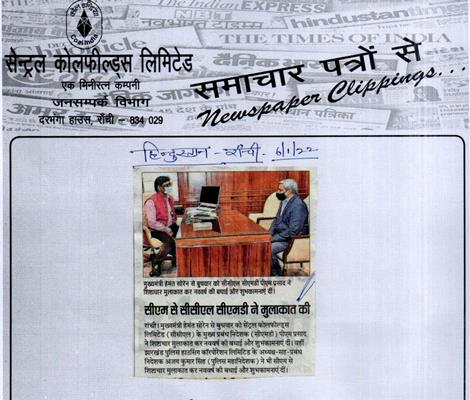 सेन्ट्रल कोलफील्ड्स लिमिटेड
एक मिनीरत्न कम्पनी
जनसम्पर्क विभाग
दरभंगा हाउस, राँची - 834 029
समाचार पत्रों से
Newspaper Clippings...
THE TIMES OF INDIA
hindustantimes
हिन्दुस्तान - राँची. 6/1/22
मुख्यमंत्री हेमंत सोरेन से बुधवार को सीसीएल सीएमडी पीएम प्रसाद ने
शिष्टाचार मुलाकात कर नववर्ष की बधाई और शुभकामनाएं दीं।
सीएम से सीसीएल सीएमडी ने मुलाकात की
रांची। मुख्यमंत्री हेमंत सोरेन से बुधवार को सेंट्रल कोलफील्ड्स
लिमिटेड (सीसीएल) के मुख्य प्रबंध निदेशक (सीएमडी) पीएम प्रसाद
ने शिष्टाचार मुलाकात कर नववर्ष की बधाई और शुभकामनाएं दीं। वहीं
झारखंड पुलिस हाउसिंग कॉरपोरेशन लिमिटेड के अध्यक्ष-सह-प्रबंध
निदेशक अजय कुमार सिंह (पुलिस महानिदेशक) ने भी सीएम से
शिष्टाचार मुलाकात कर नववर्ष की बधाई और शुभकामनाएं दीं।